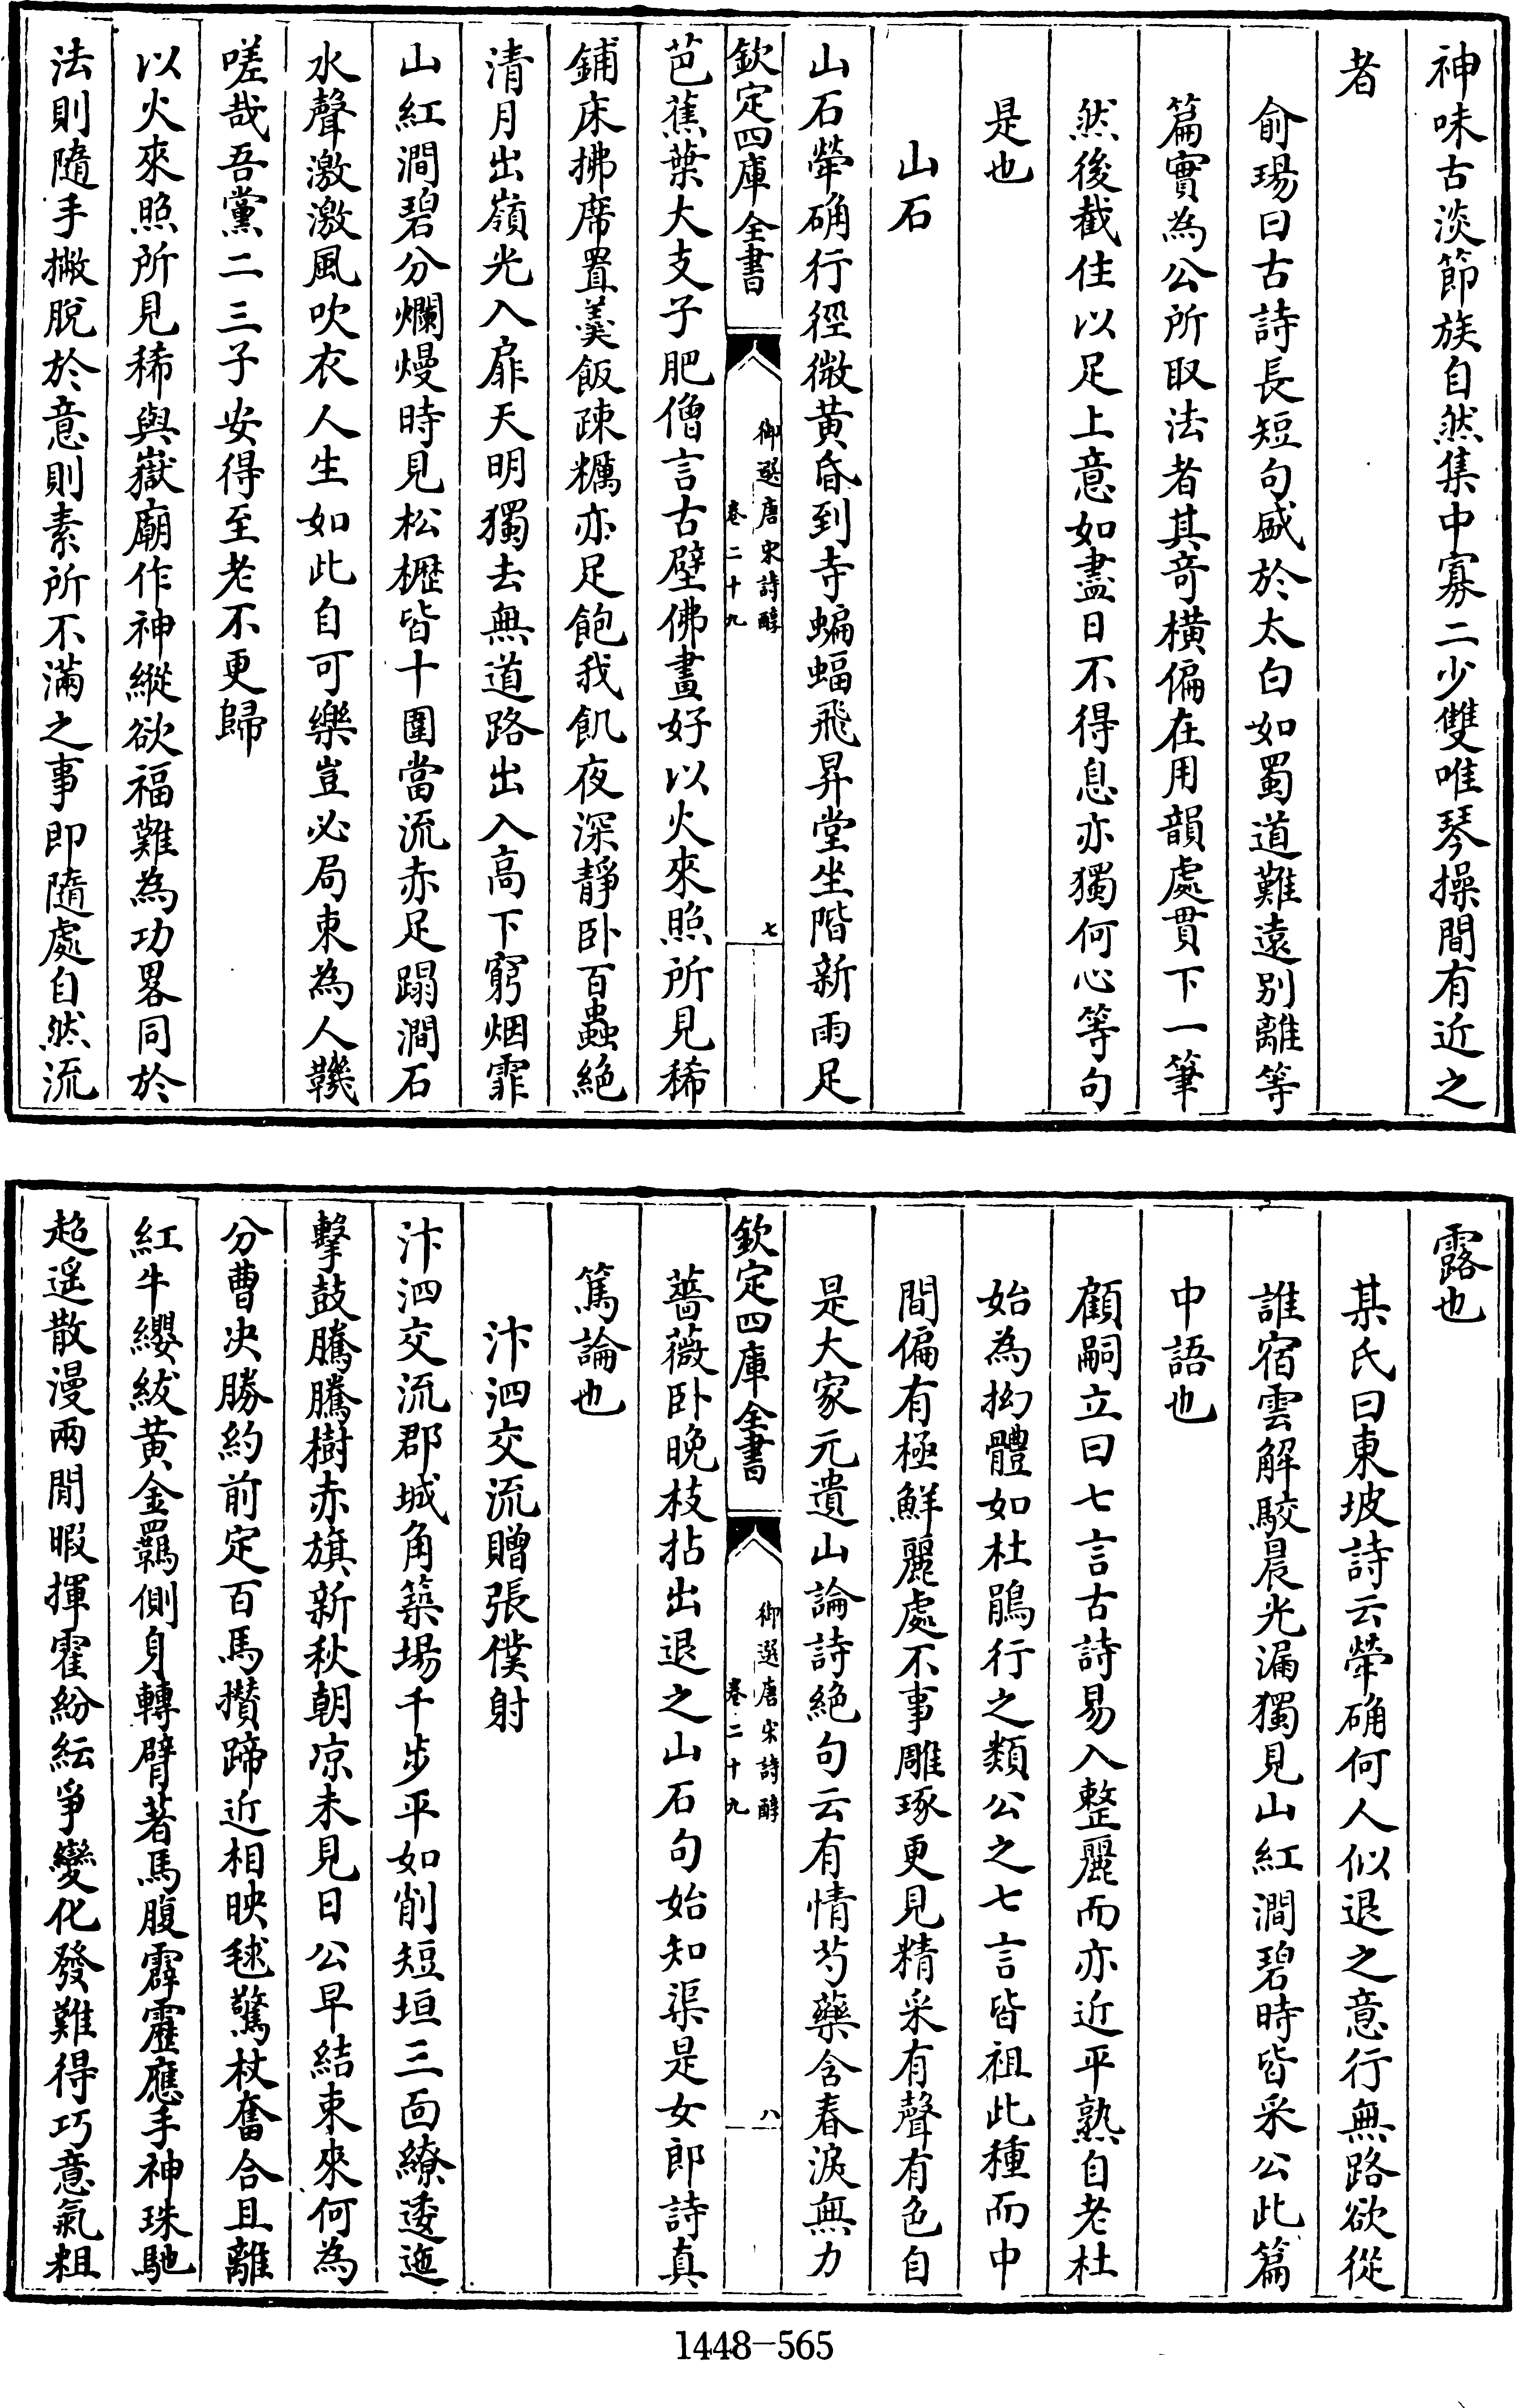 神味古淡節族自然集中寡二少雙唯琴操間有近之
者
俞瑒曰古詩長短句盛於太白如蜀道難遠别離等
篇實為公所取法者其奇橫偏在用韻處貫下一筆
然後截住以足上意如盡日不得息亦獨何心等句
是也
山石
山石犖确行徑微黄昏到寺蝙蝠飛昇堂坐階新雨足
欽定四庫全書
御選唐宋詩醇
卷二十九
七
芭蕉葉大支子肥僧言古壁佛畫好以火來照所見稀
鋪床拂席置羮飯疎糲亦足飽我飢夜深靜卧百蟲絶
清月出嶺光入扉天明獨去無道路出入高下窮烟霏
山紅澗碧分爛熳時見松櫪皆十圍當流赤足蹋澗石
水聲激激風吹衣人生如此自可樂豈必局束為人鞿
嗟哉吾黨二三子安得至老不更歸
以火來照所見稀與嶽廟作神縱欲福難為功畧同於
法則隨手撇脫於意則素所不滿之事即隨處自然流
露也
某氏曰東坡詩云犖确何人似退之意行無路欲從
誰宿雲解駮晨光漏獨見山紅澗碧時皆采公此篇
中語也
顧嗣立曰七言古詩易入整麗而亦近平熟自老杜
始為拗體如杜鵑行之類公之七言皆祖此種而中
間偏有極鮮麗處不事雕琢更見精采有聲有色自
是大家元遺山論詩絶句云有情芍藥含春淚無力
欽定四庫全書
御選唐宋詩醇
卷二十九
八
薔薇卧晩枝拈出退之山石句始知渠是女郎詩真
篤論也
汴泗交流贈張僕射
汴泗交流郡城角築場千步平如削短垣三面繚逶迤
擊鼓騰騰樹赤旗新秋朝凉未見日公早結束來何為
分曹决勝約前定百馬攢蹄近相映毬驚杖奮合且離
紅牛纓紱黄金羈側身轉臂著馬腹霹靂應手神珠馳
超遥散漫兩閒暇揮霍紛紜爭變化發難得巧意氣粗
1448-565